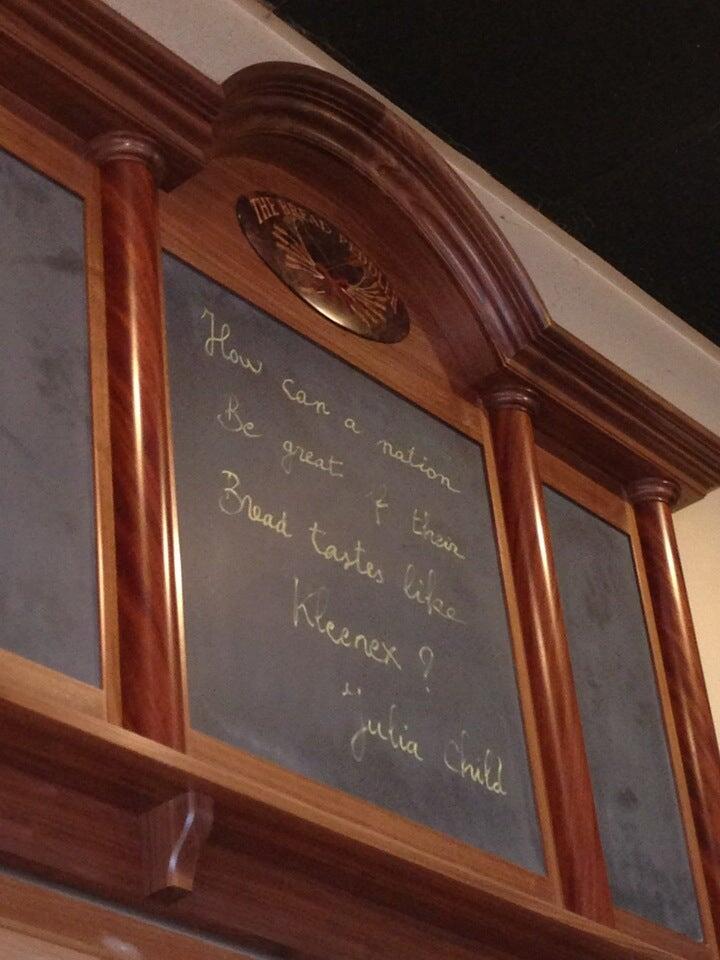 THE BREAD
How can a nation
Be great if their
Bread tastes like
Kleenex ?
" Julia Child